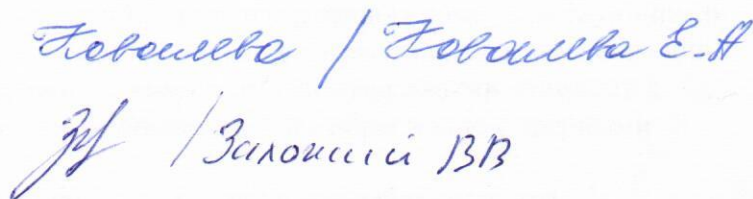 Ковалева / Ковалева Е.А
/ Заложний ВВ